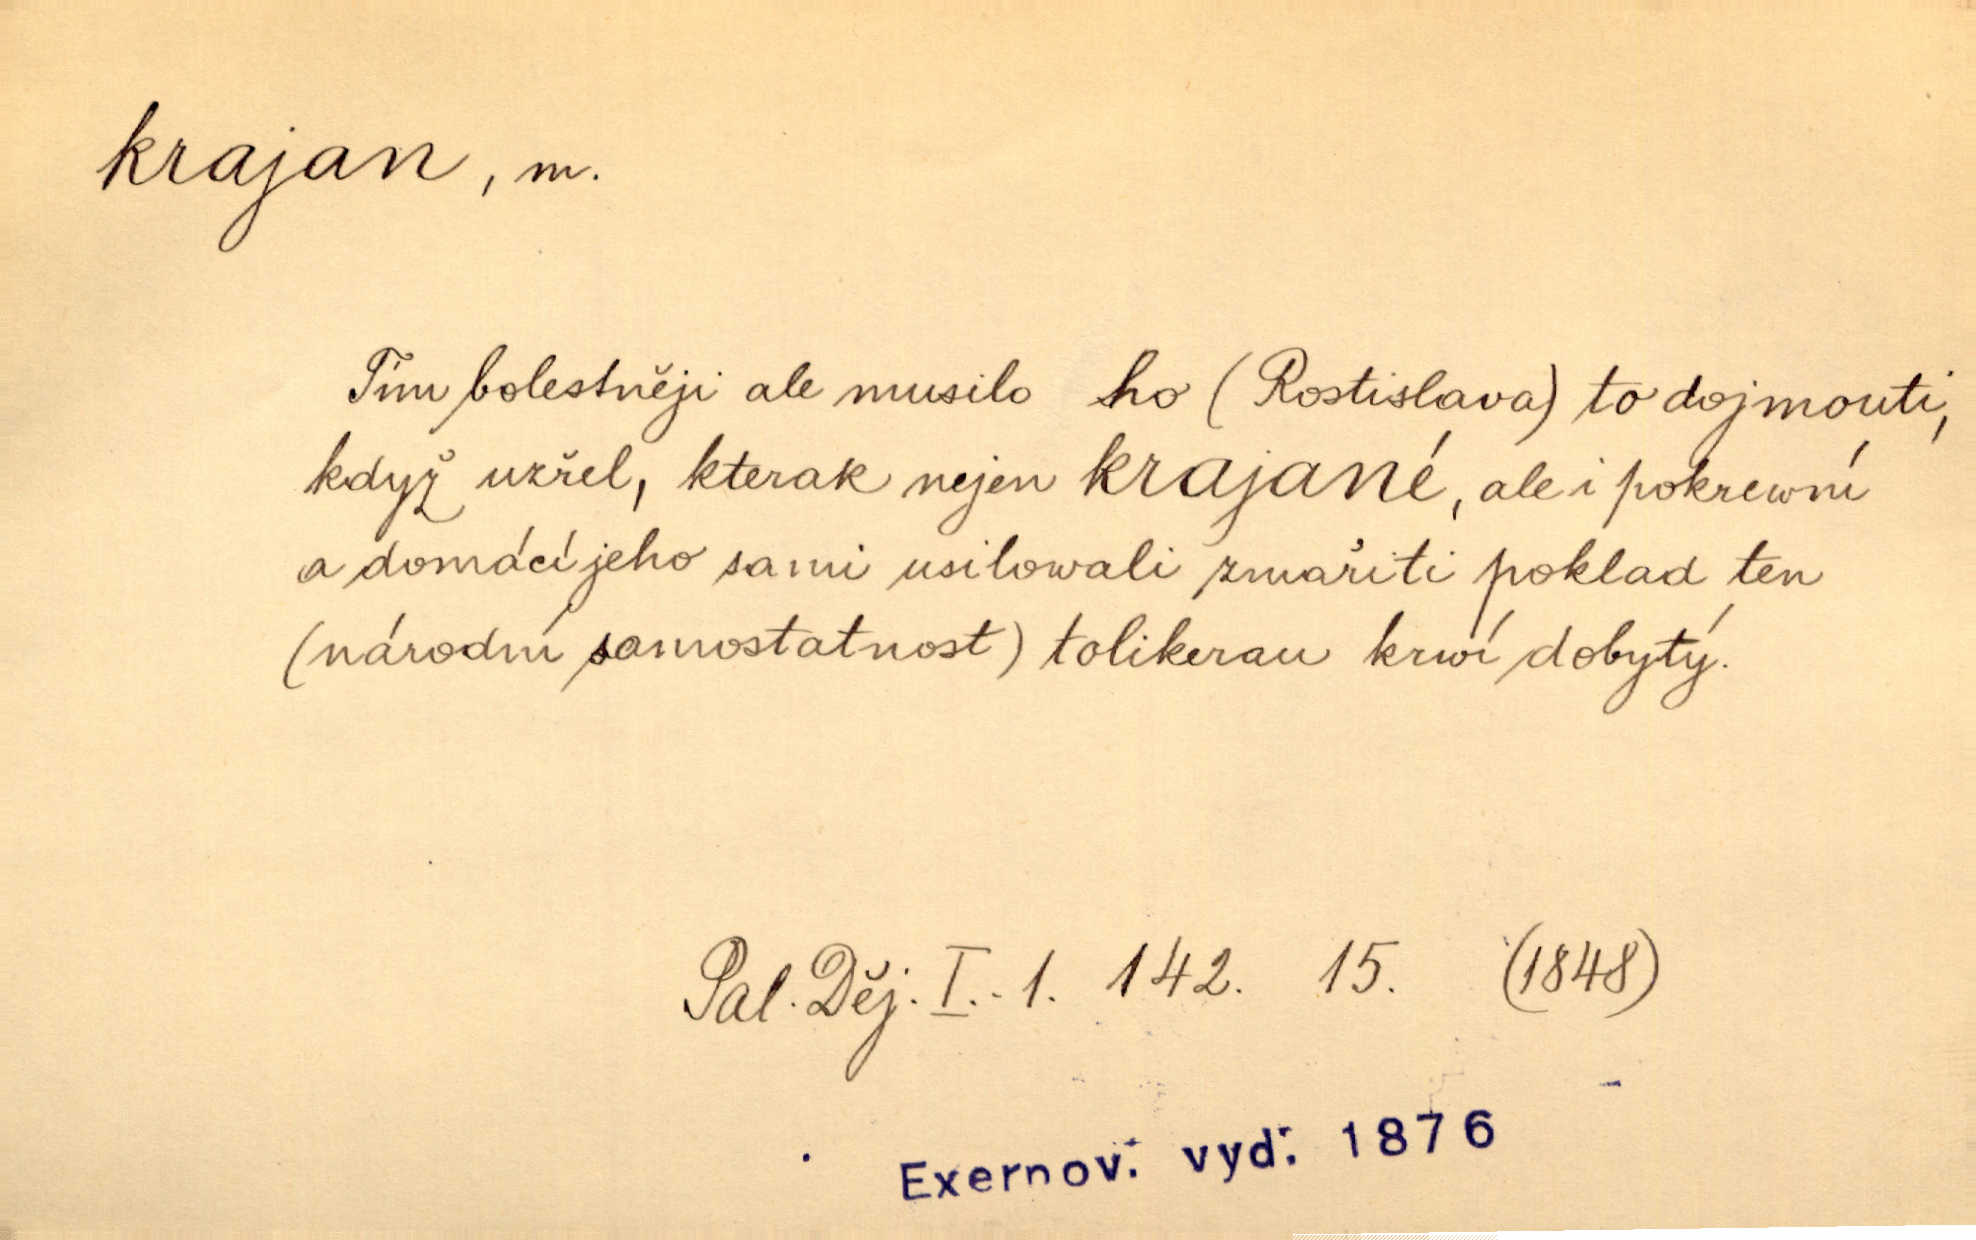 krajan, m.
Tím bolestněji ale musilo ho (Rostislava) to dojmouti,
když uzřel, kterak nejen krajané, ale i pokrewní
a domácí jeho sami usilowali zmařiti poklad ten
(národní samostatnost) tolikerau krwí dobytý.
Pal. Děj. I.. 1. 142. 15. (1848)
Exernov. vyd. 1876